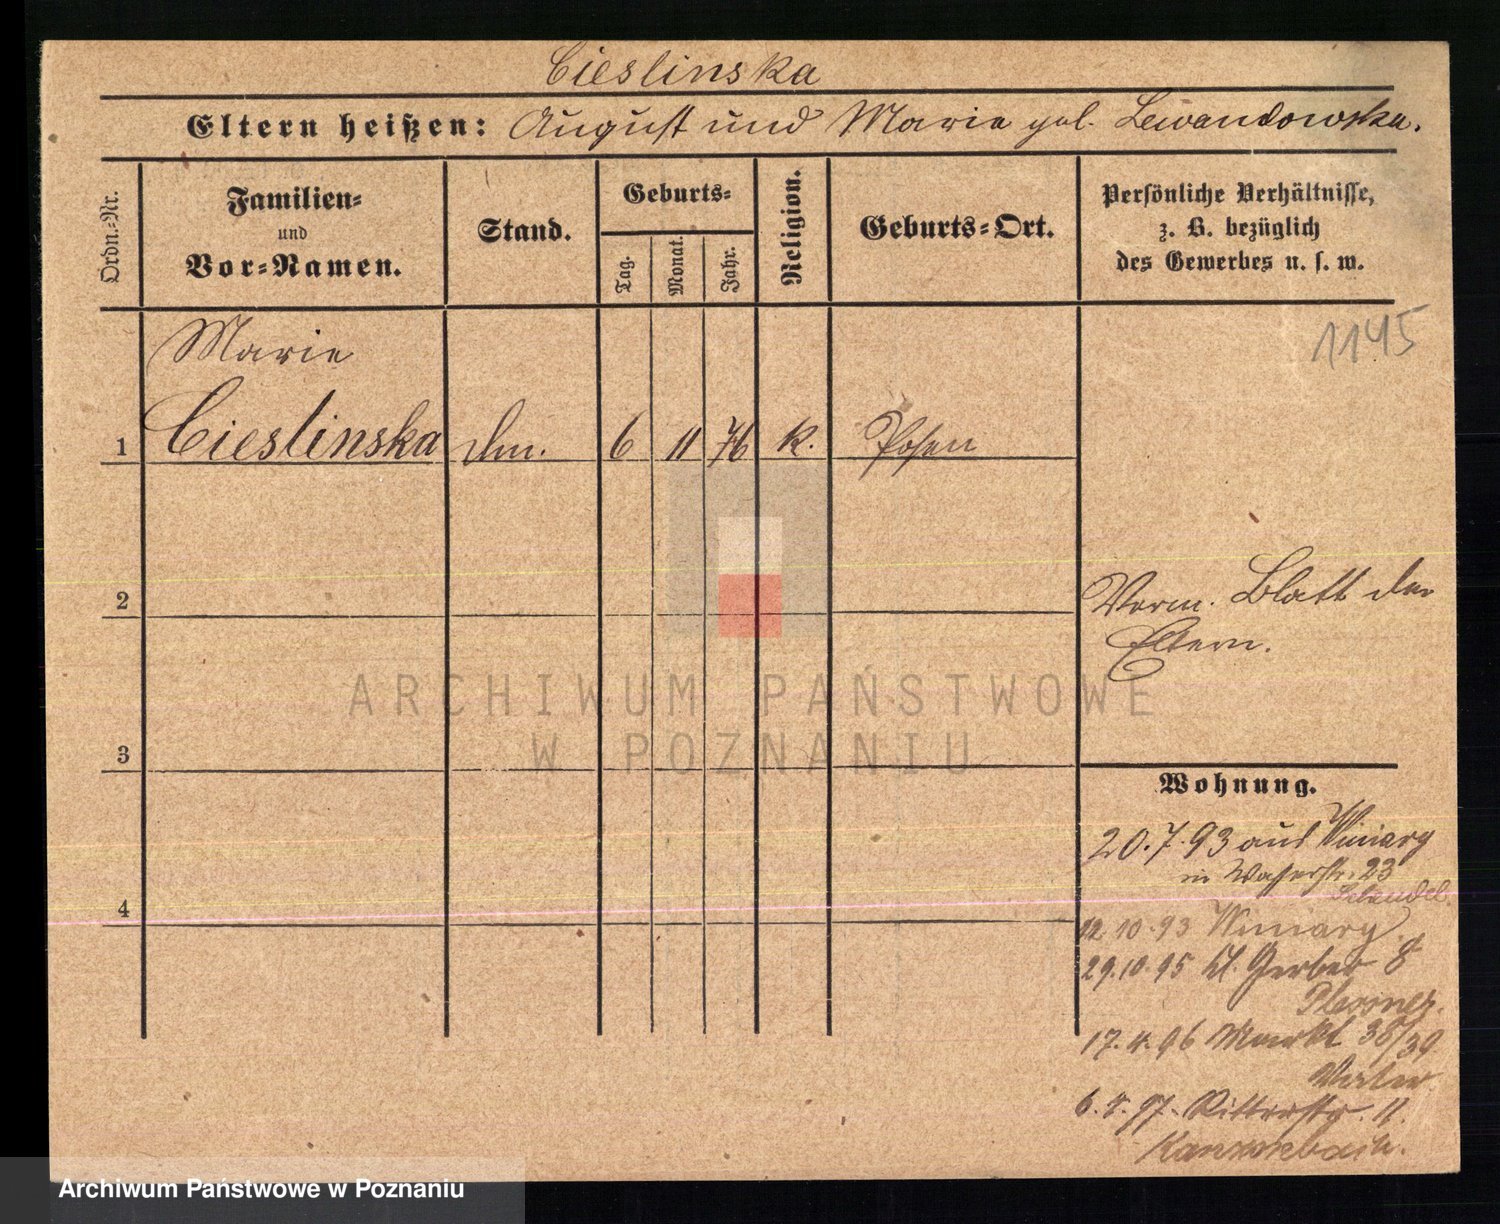 Cieslinska
Eltern heißen: August und Marie geb. Lewandowska.
Ordn.-Nr.
Familien-
und
Vor-Namen.
Stand.
Geburts-
Tag.
Monat.
Jahr.
Religion.
Geburts-Ort.
Persönliche Verhältnisse,
z. B. bezüglich
des Gewerbes u. s. w.
1145
Marie
1 Cieslinska 6 11 76 k. Posen
2
Verm. Blatt der
Eltern.
3
4
Wohnung.
20.7.93 aus Winiary
in Wasserstr. 23
12.10.93 Winiary
29.10.95 kl. Gerber 8
17.4.96 Markt 38/39
97. Ritterstr. 11.
ARCHIWUM PAŃSTWOWE
W POZNANIU
Archiwum Państwowe w Poznaniu